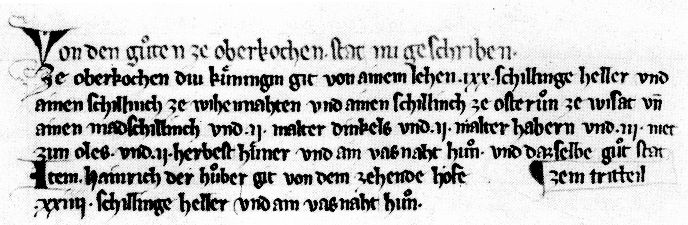 Von den gůten ze oberkochen. stat nu geschriben.
Ze oberkochen diu kúningin git von ainem lehen .xxx. schillinge heller vnd
ainen schillinch ze wihennahten vnd ainen schillinch ze ostern ze wisat vn̄
ainen madschillinch vnd .ij. malter dinkels vnd .ij. malter habern vnd .iij.
zun oles. vnd .ij. herbest hůner vnd ain vasnaht hůn. vnd dazselbe gůt stat
Item. hainrich der hůber git von dem zehende hofe
zem tritteil
.xxiiij. schillinge heller vnd ain vasnaht hůn.